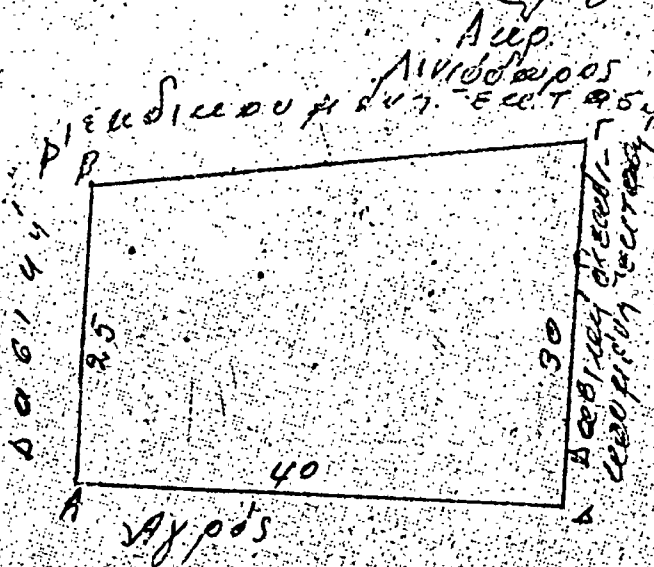 Ακρ.
Λινιόδωρος
διεκδικουμένη έκτασ
Β
Γ
Δασική
25
30
Δασική διεκδι-
κουμένη έκταση
40
Α
Δ
Αγρός